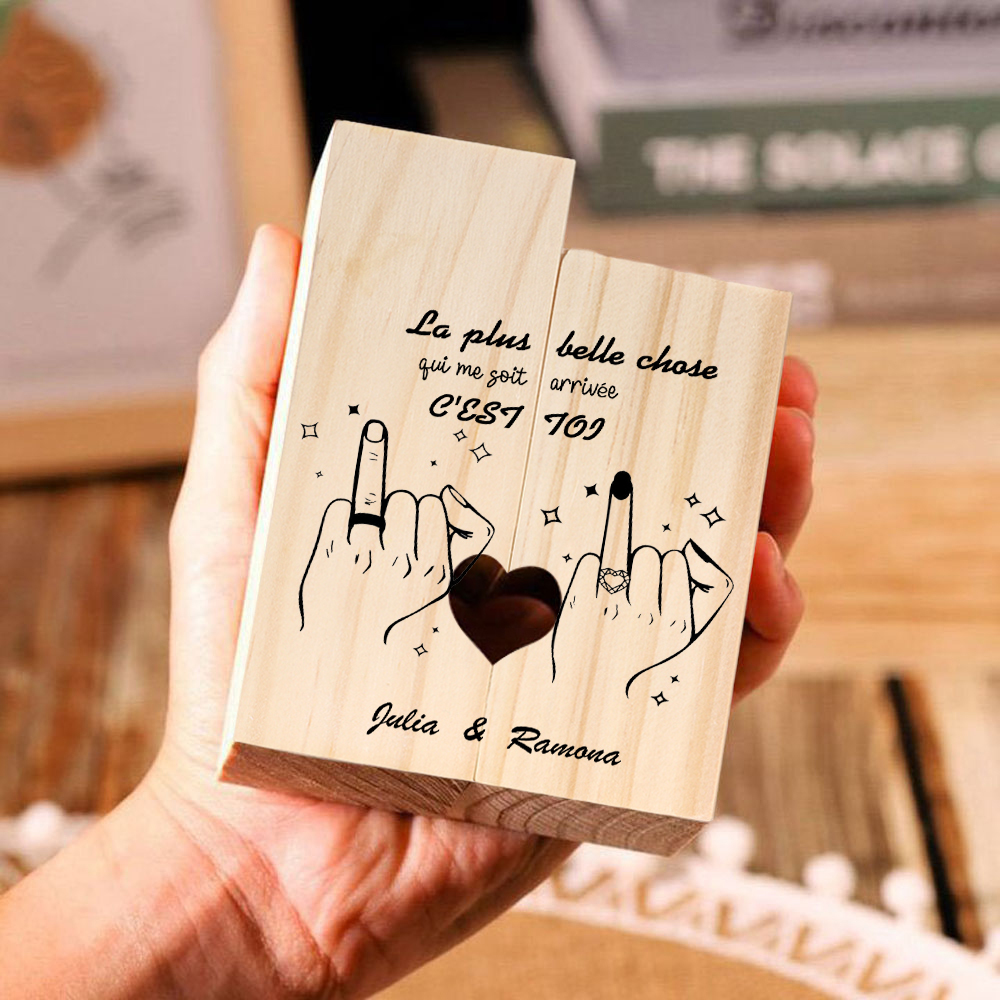 THE SOLACE
La plus belle chose
qui me soit arrivée
C'EST TOI
Julia & Ramona